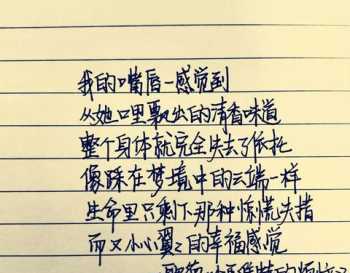 我的嘴唇一感觉到
从她口里飘出的清香味道
整个身体就完全失去了依托
像踩在梦境中的云端一样
生命里只剩下那种惊慌失措
而又小心翼翼的幸福感觉